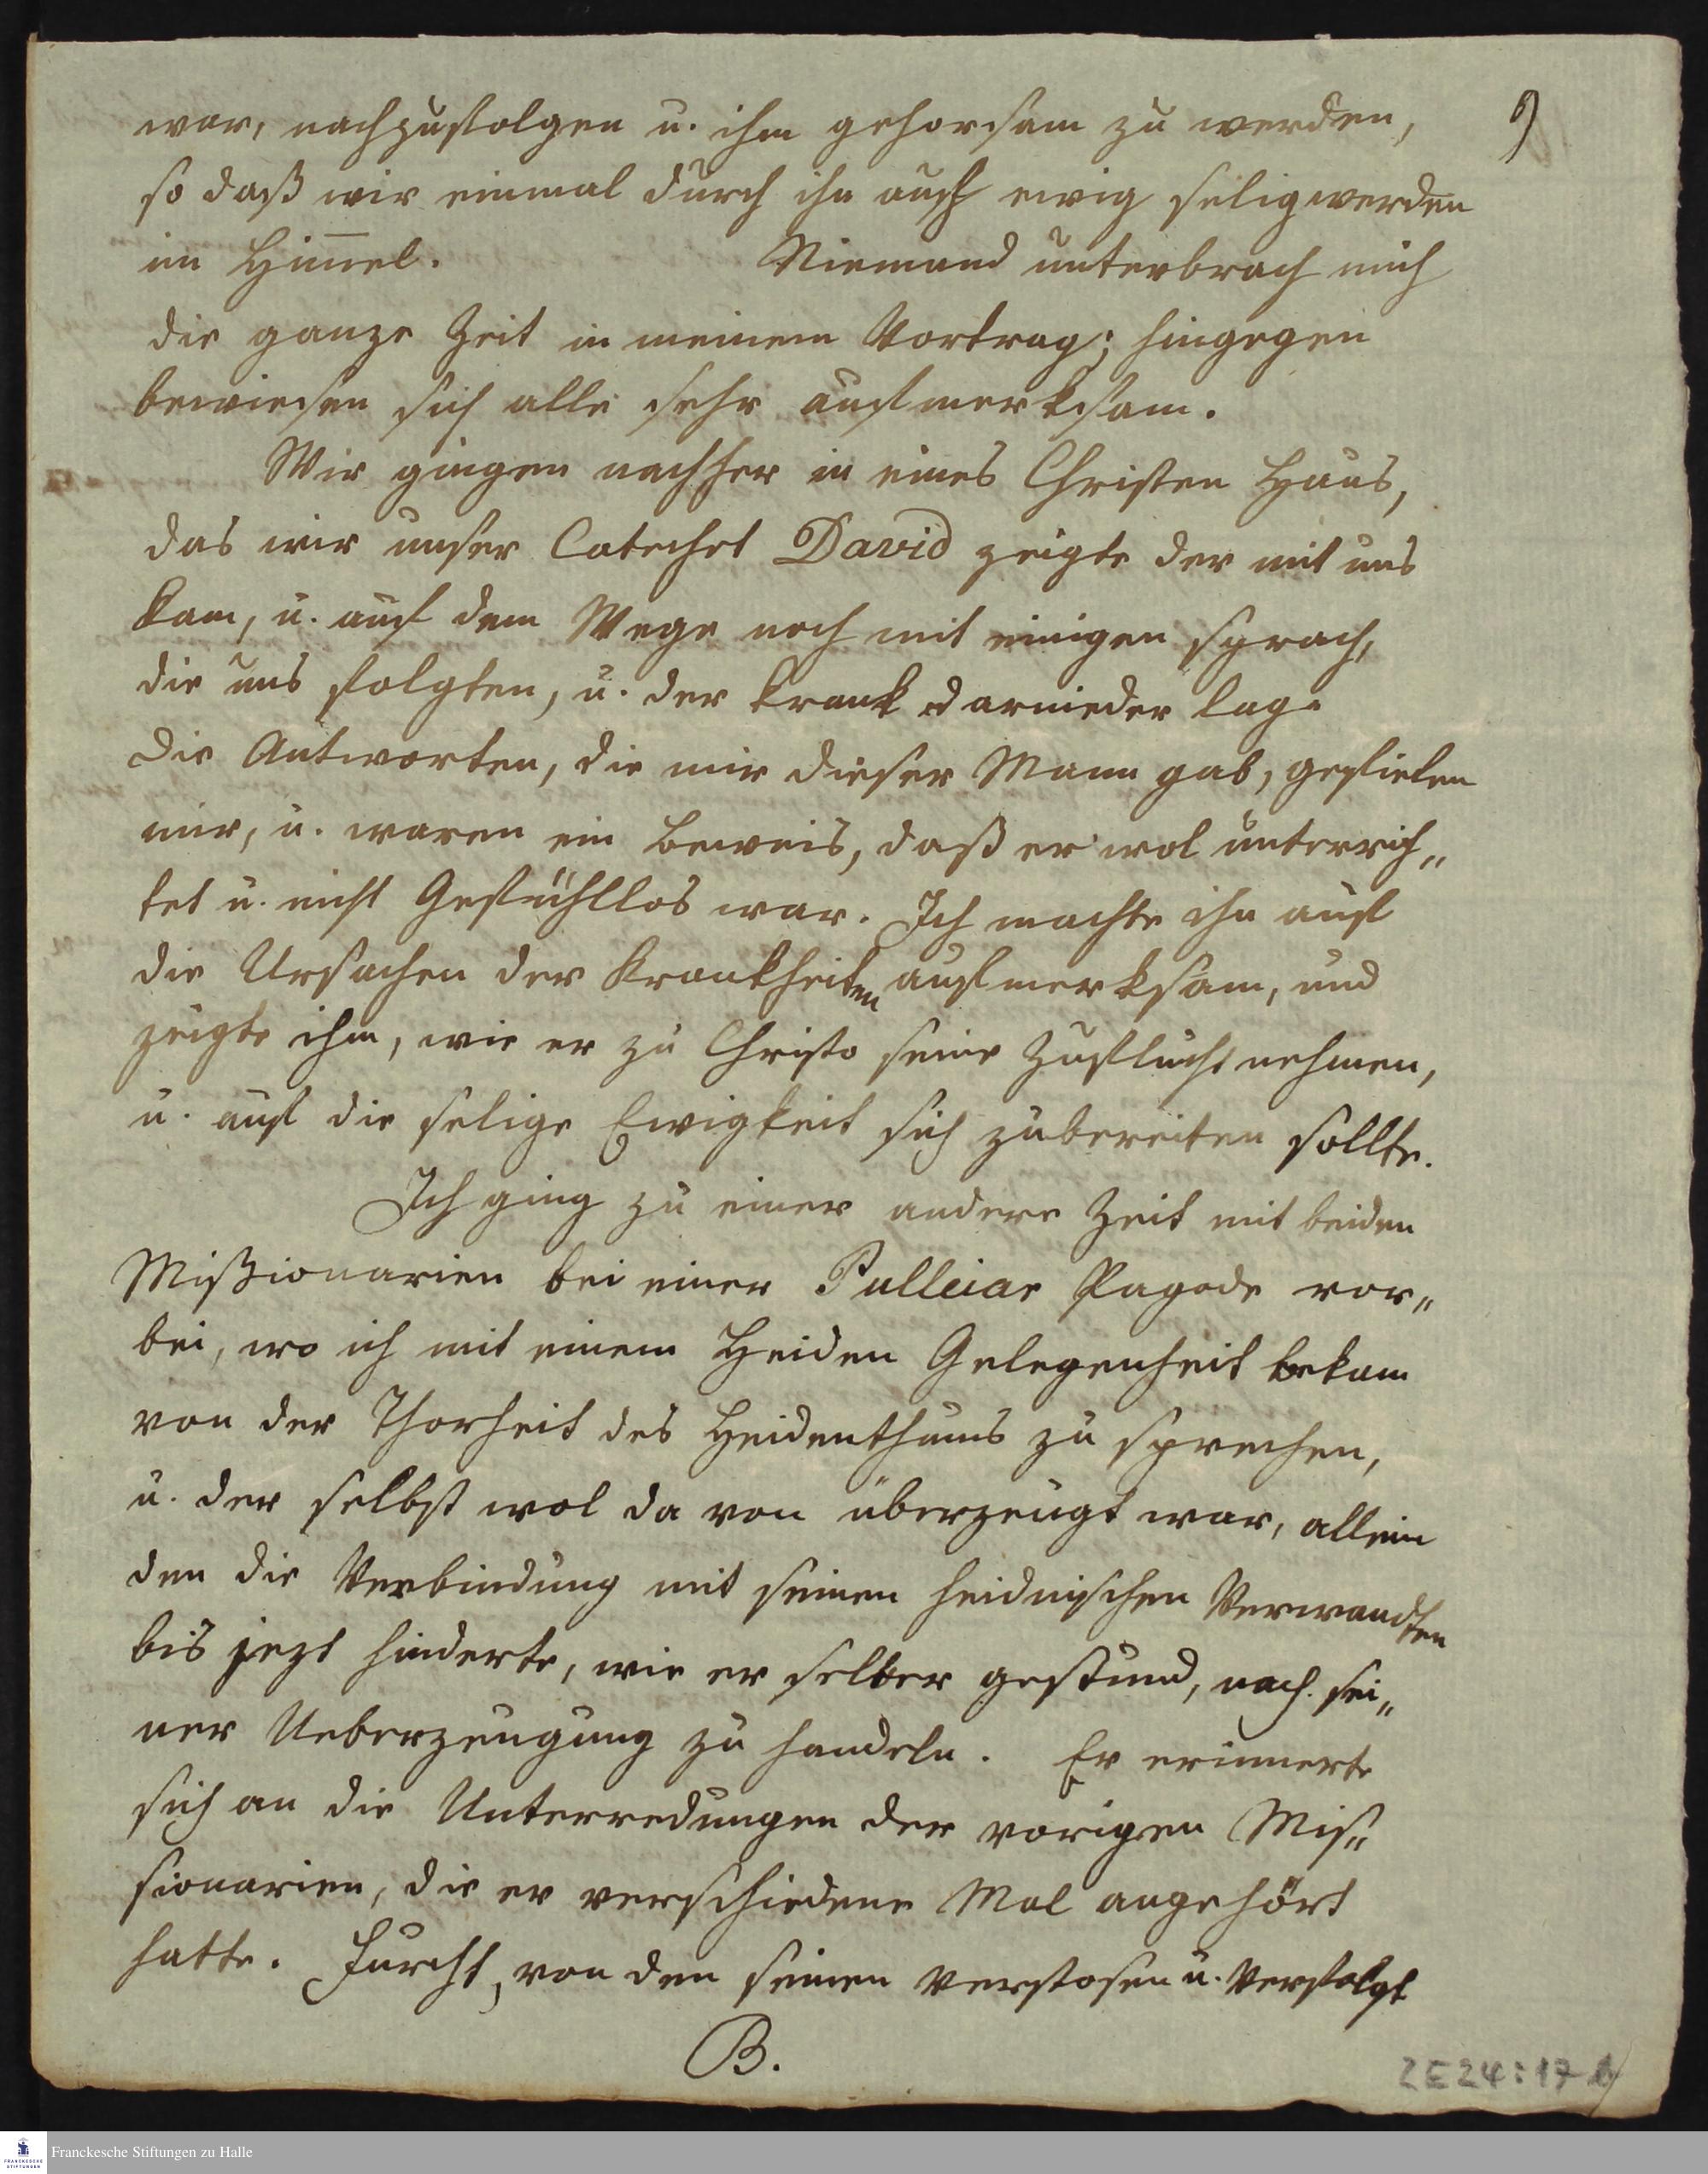 war, nachzufolgen u. ihm gehorsam zu werden,
9)
so daß wir einmal durch ihn auch ewig selig werden
im Him̅el. Niemand unterbrach mich
die ganze Zeit in meinem Vortrag; hingegen
bewiesen sich alle sehr aufmerksam.
Wir gingen nachher in eines Christen Haus,
das wir unser Catechet David zeigte der mit uns
kam, u. auf dem Wege noch mit einigen sprach,
die uns folgten, u. der krank darnieder lag.
Die Antworten, die mir dieser Mann gab, gefielen
mir, u. waren ein Beweis, daß er wol unterrich„
tet u. nicht Gefühllos war. Ich machte ihn auf
die Ursachen der Krankheiten aufmerksam, und
zeigte ihm, wie er zu Christo seine Zuflucht nehmen,
u. auf die selige Ewigkeit sich zubereiten sollte.
Ich ging zu einer andere Zeit mit beiden
Mißionarien bei einer Pulleiar Pagode vor„
bei, wo ich mit einem Heiden Gelegenheit bekam
von der Thorheit des Heidenthums zu sprechen,
u. der selbst wol da von überzeugt war, allein
den die Verbindung mit seinen heidnischen Verwandten
bis jezt hinderte, wie er selber gestund, nach sei„
ner Ueberzeugung zu handeln. Er erinnerte
sich an die Unterredungen der vorigen Mis„
sionarien, die er verschiedene Mal angehört
hatte. Furcht, von den seinen verstosen u. verfolgt
B.
ZE24:17
Franckesche Stiftungen zu Halle
FRANCKESCHE STIFTUNGEN